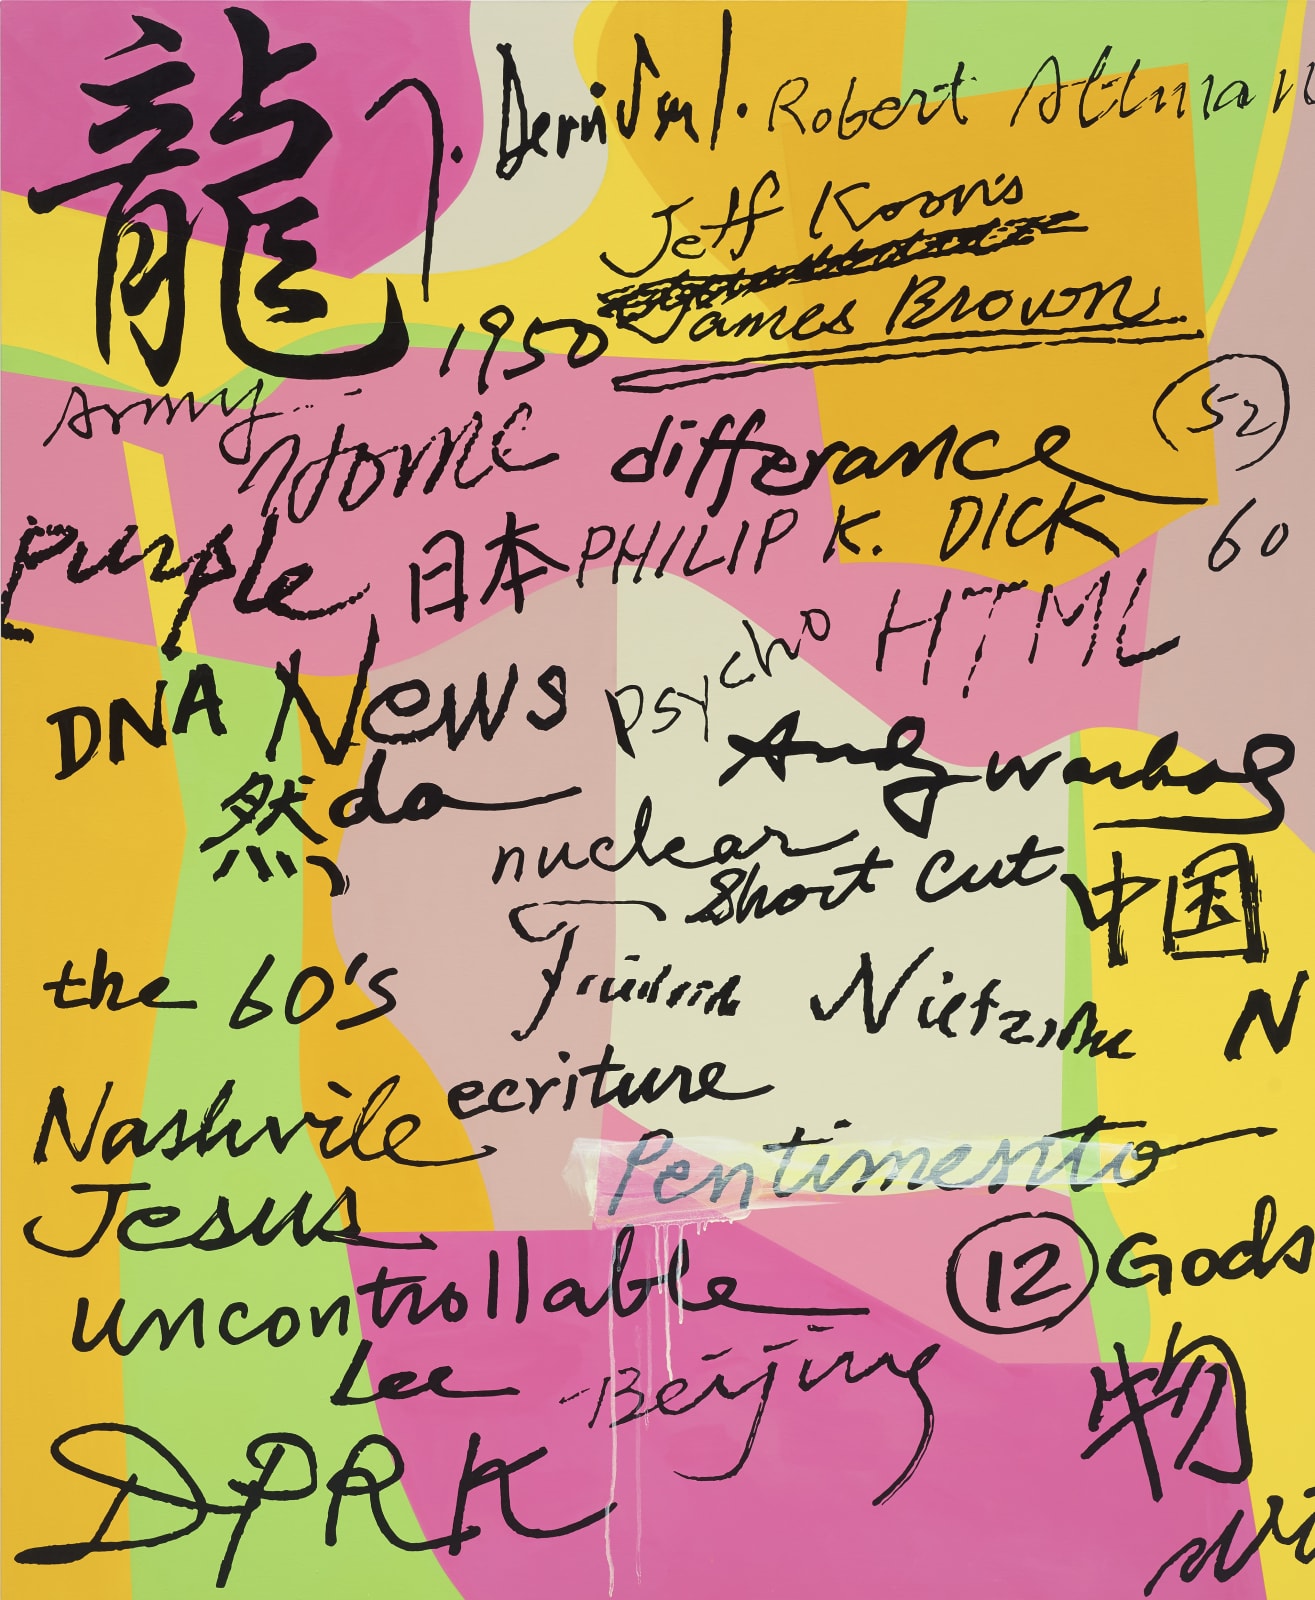 龍
J. Derrida/.
Robert Altman
Jeff Koons
James Brown
1950
Army
Home
differance
52
Purple
日本
PHILIP K. DICK
60
psycho
HTML
DNA
News
Andy Warhol
然
da
nuclear
short cut
中国
the 60's
Friedrich Nietzsche
N
Nashvile
ecriture
Pentimento
Jesus
12
Gods
uncontrollable
Lee
Beijing
物
DPRK